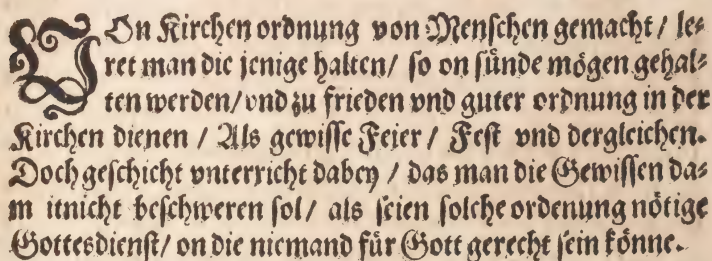 VOn Kirchen ordnung von Menschen gemacht / le⸗
ret man die jenige halten / so on sünde mögen gehal⸗
ten werden / vnd zu frieden vnd guter ordnung in der
Kirchen dienen / Als gewisse Feier / Fest vnd dergleichen.
Doch geschicht vnterricht dabey / das man die Gewissen da⸗
m itnicht beschweren sol / als seien solche ordenung nötige
Gottesdienst / on die niemand für Gott gerecht sein könne.